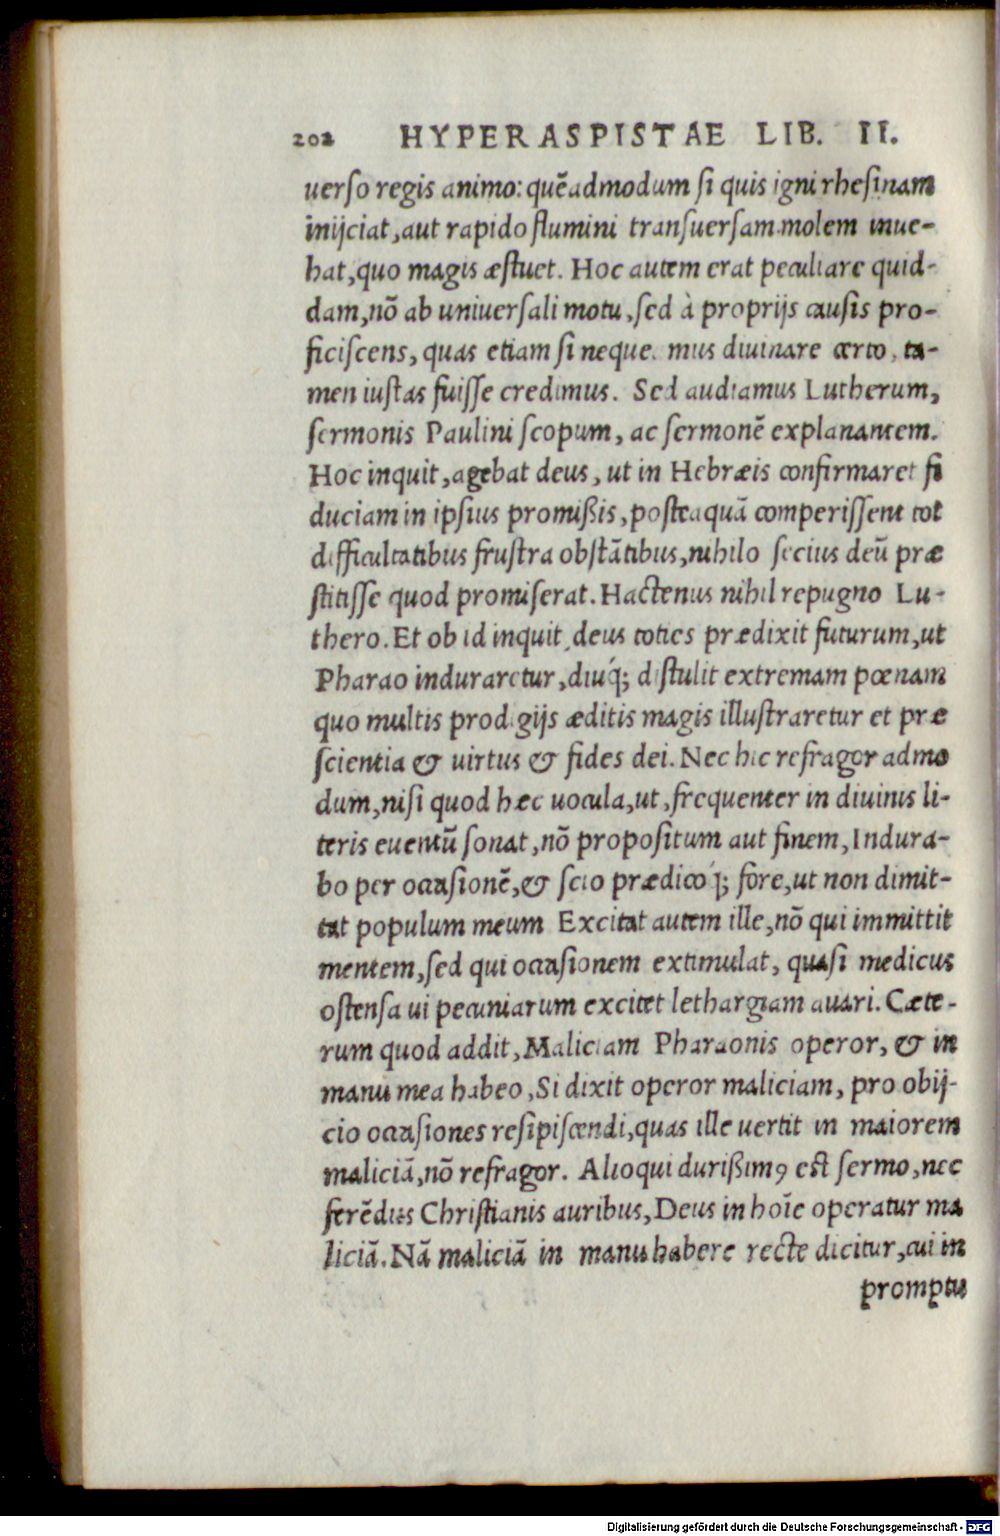 202 HYPERASPISTAE LIB. II.
uerso regis animo: quēadmodum si quis igni rhesinam
inijciat, aut rapido flumini transuersam molem inue-
hat, quo magis æstuet. Hoc autem erat peculiare quid-
dam, nō ab uniuersali motu, sed à proprijs causis pro-
ficiscens, quas etiam si neque mus diuinare certo, ta-
men iustas fuisse credimus. Sed audiamus Lutherum,
sermonis Paulini scopum, ac sermonē explanantem.
Hoc inquit, agebat deus, ut in Hebræis confirmaret fi
duciam in ipsius promißis, posteaquā comperissent tot
difficultatibus frustra obstātibus, nihilo secius deū præ
stitisse quod promiserat. Hactenus nihil repugno Lu-
thero. Et ob id inquit, deus toties prædixit futurum, ut
Pharao induraretur, diuq́; distulit extremam pœnam
quo multis prodigijs æditis magis illustraretur et præ
scientia & uirtus & fides dei. Nec hic refragor admo
dum, nisi quod hæc uocula, ut, frequenter in diuinis li-
teris euentū sonat, nō propositum aut finem, Indura-
bo per occasionē, & scio prædico q́; fore, ut non dimit-
tat populum meum Excitat autem ille, nō qui immittit
mentem, sed qui occasionem extimulat, quasi medicus
ostensa ui pecuniarum excitet lethargiam auari. Cæte-
rum quod addit, Maliciam Pharaonis operor, & in
manu mea habeo, Si dixit operor maliciam, pro obij-
cio occasiones resipiscendi, quas ille uertit in maiorem
maliciā, nō refragor. Alioqui durißimꝰ est sermo, nec
ferēdus Christianis auribus, Deus in hoīe operatur ma
liciā. Nā maliciā in manu habere recte dicitur, cui in
promptu
Digitalisierung gefördert durch die Deutsche Forschungsgemeinschaft - DFG